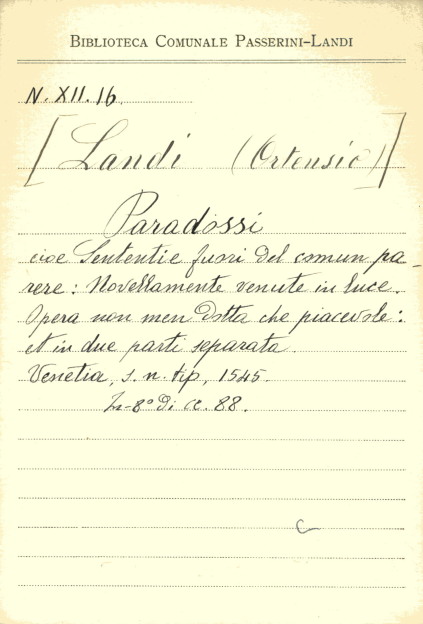 BIBLIOTECA COMUNALE PASSERINI-LANDI
N. XII. 16.
[Landi (Ortensio)]
Paradossi
cioe Sententie fuori del comun pa-
rere: Novellamente venute in luce.
Opera non men dotta che piacevole:
et in due parti separata.
Venetia, s. n. tip, 1545.
In-8° di cc. 88.
C